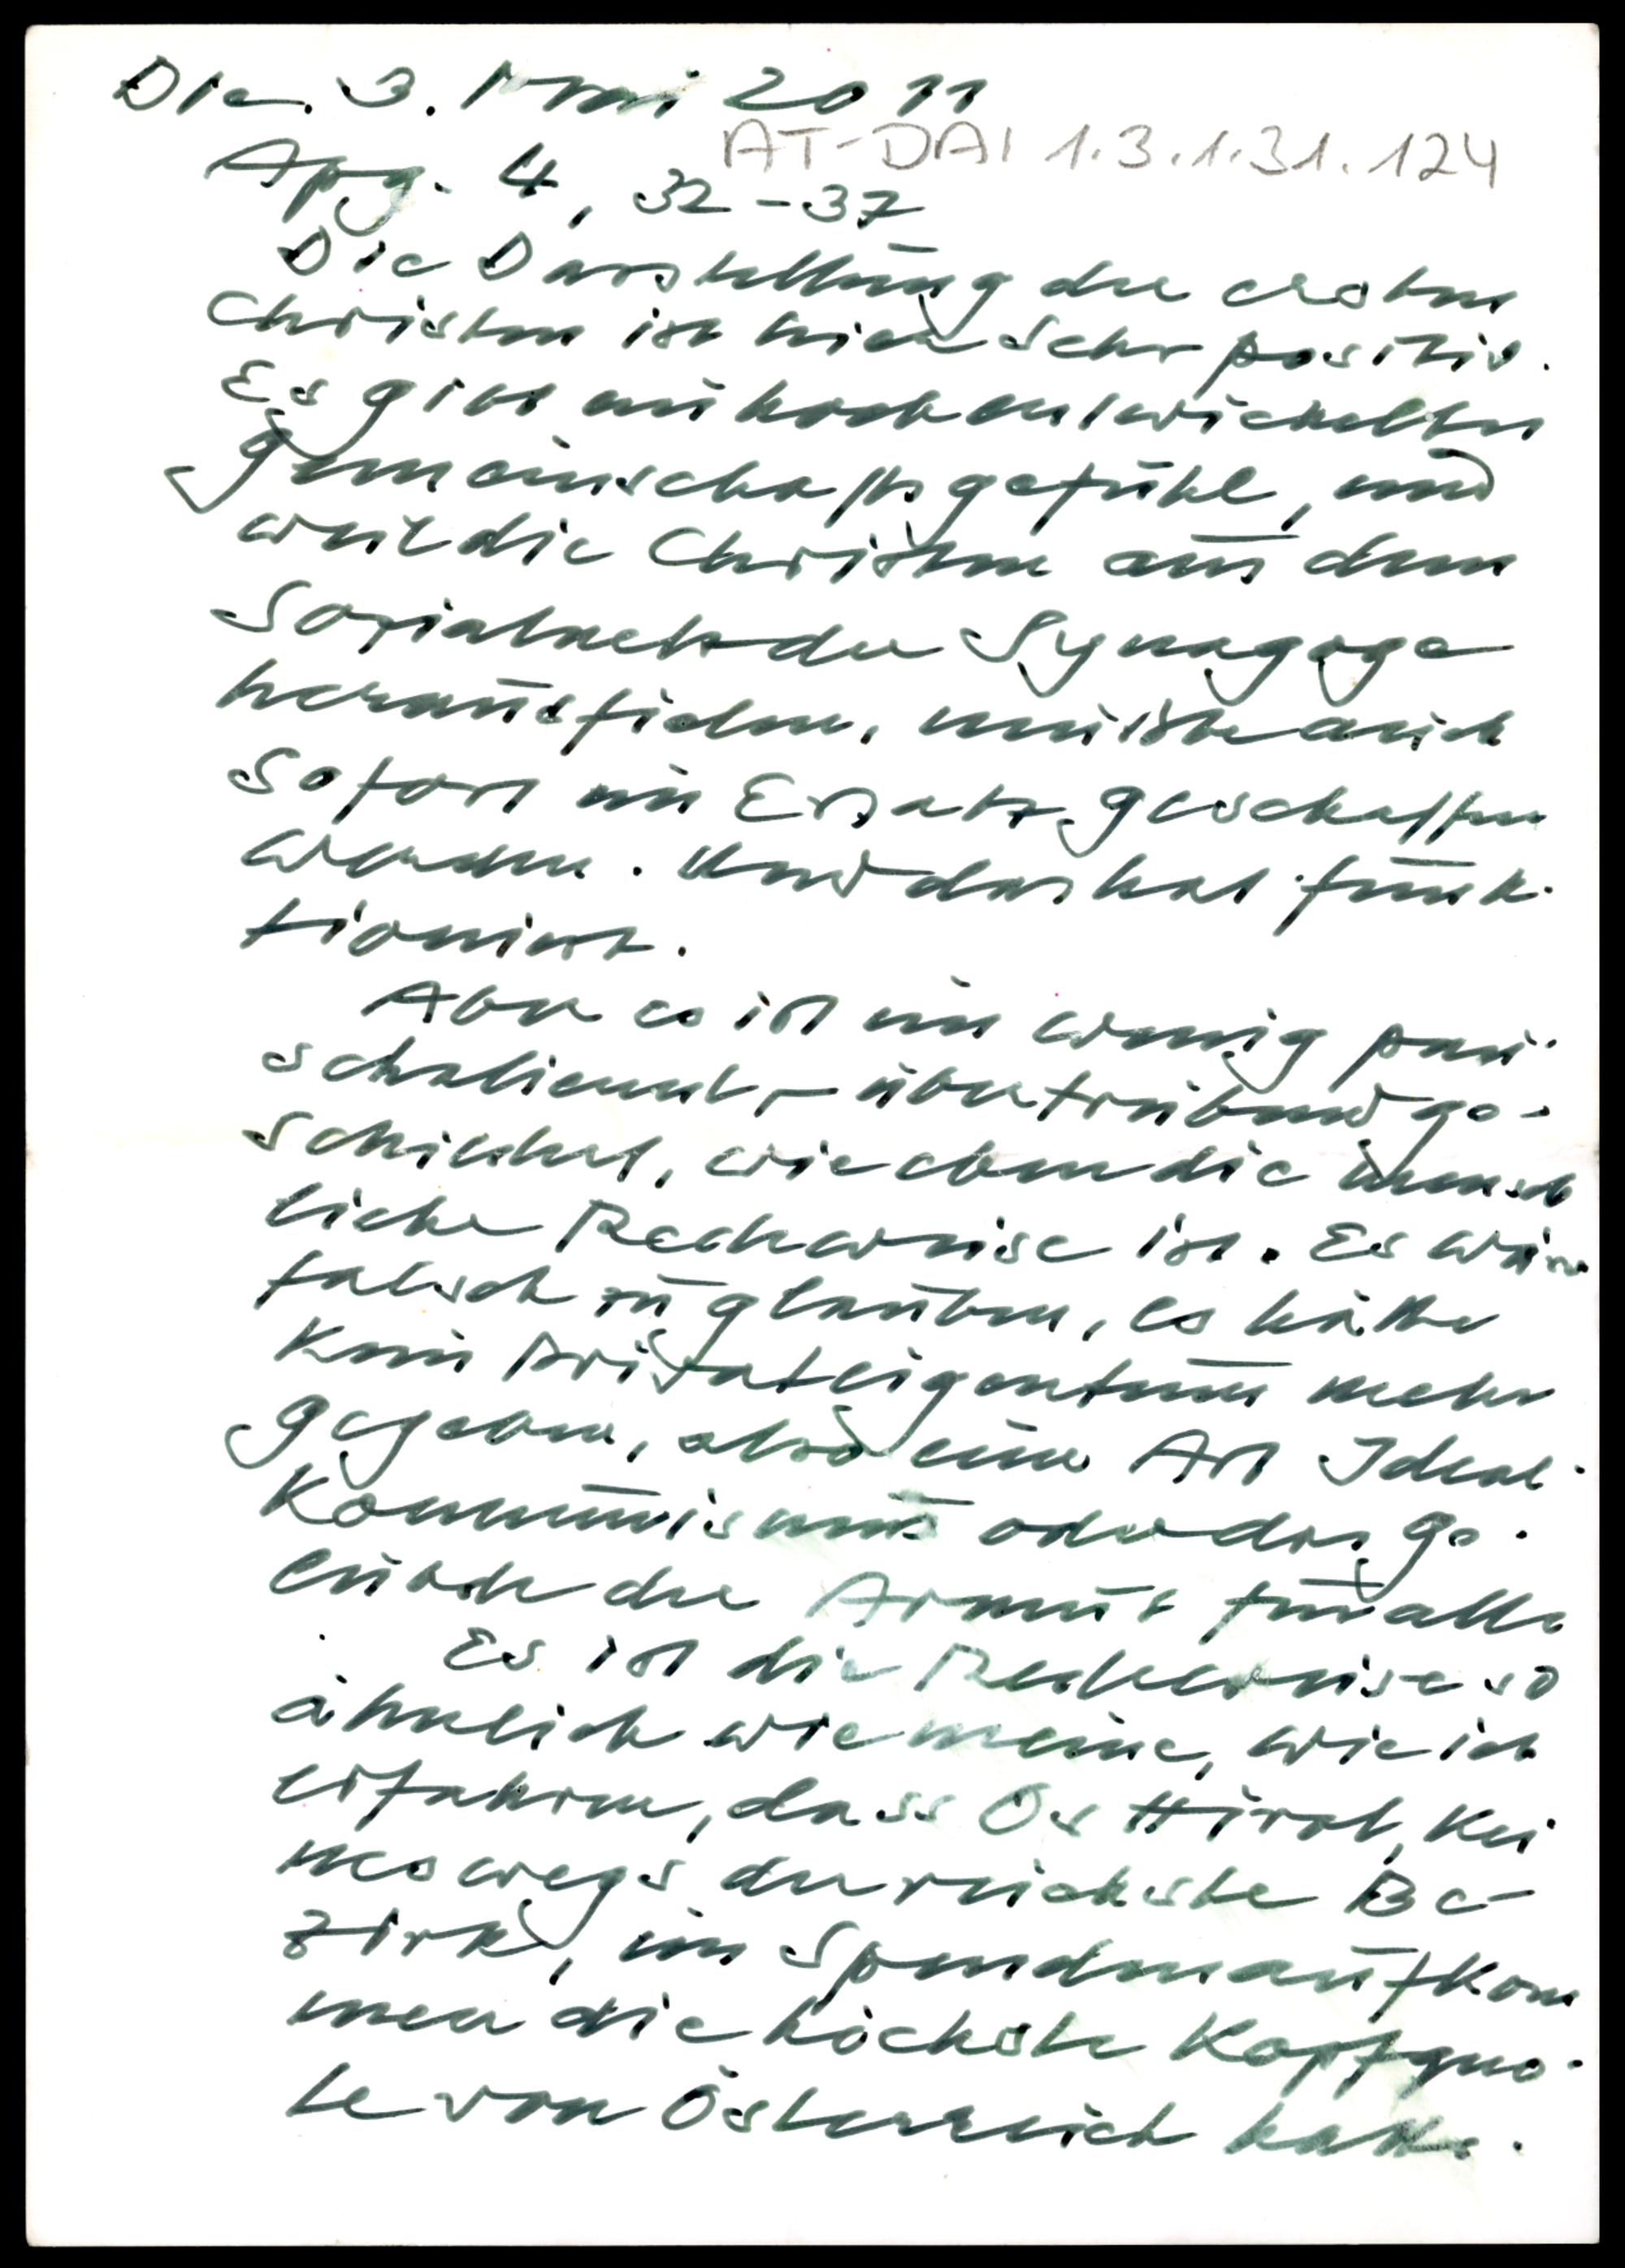 Die. 3. Mai 2011
AT-DAI 1.3.1.31.124
Apg. 4, 32-37
Die Darstellung der ersten
Christen ist hier sehr positiv.
Es gibt ein hochentwickeltes
Gemeinschaftsgefühl, und
weil die Christen aus dem
Sozialnetz der Synagoge
herausfielen, musste auch
sofort ein Ersatz geschaffen
werden. Und das hat funk-
tioniert.
Aber es ist ein wenig pau-
schalierend, übertreibend ge-
schildert, wie eben die
liche Redeweise ist. Es wäre
falsch zu glauben, es hätte
kein Privateigentum mehr
gegeben, also eine Art Ideal-
kommunismus oder das Ge-
lübde der Armut für alle
Es ist die Redeweise so
ähnlich wie meine, wie ich
erfahren, dass Osttirol, kei
neswegs der reichste Be-
zirk, im Spendenaufkom
men die höchste Kopfquo-
te von Österreich hatte.